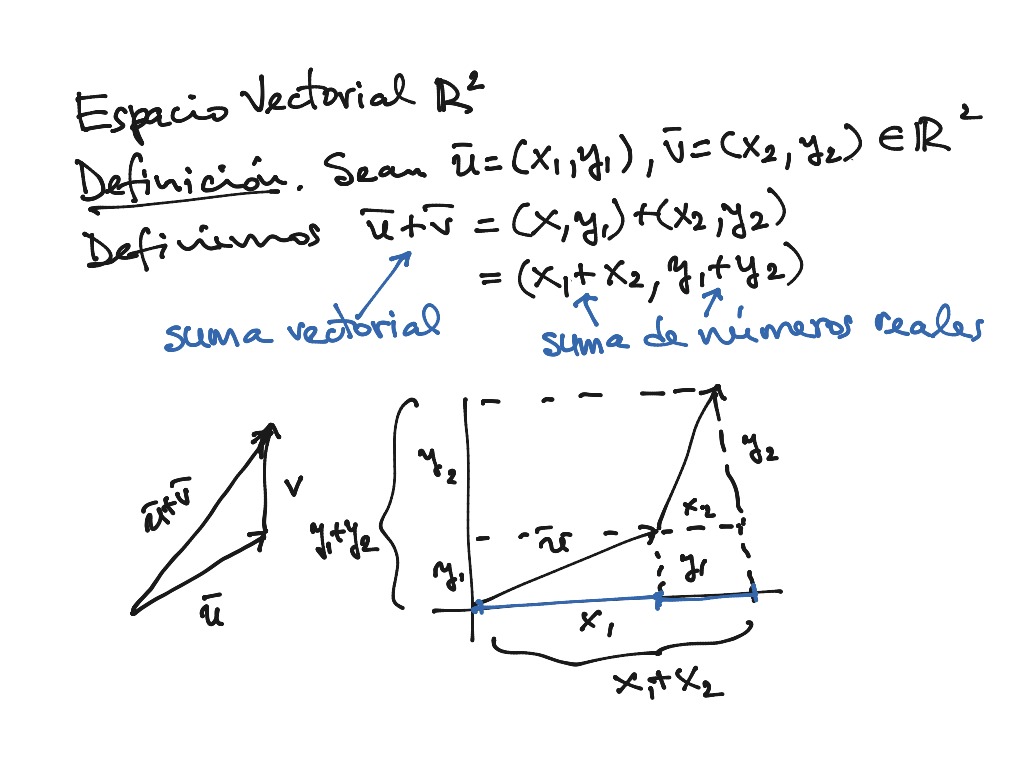 Espacio Vectorial ℝ²
Definición. Sean ū = (x₁, y₁), v̄ = (x₂, y₂) ∈ ℝ²
Definimos ū + v̄ = (x, y₁) + (x₂, y₂)
= (x₁ + x₂, y₁ + y₂)
suma vectorial
suma de números reales
ū + v̄
v
ū
y₁ + y₂
y₂
y₁
ū
y₂
x₂
y₁
x₁
x₁ + x₂